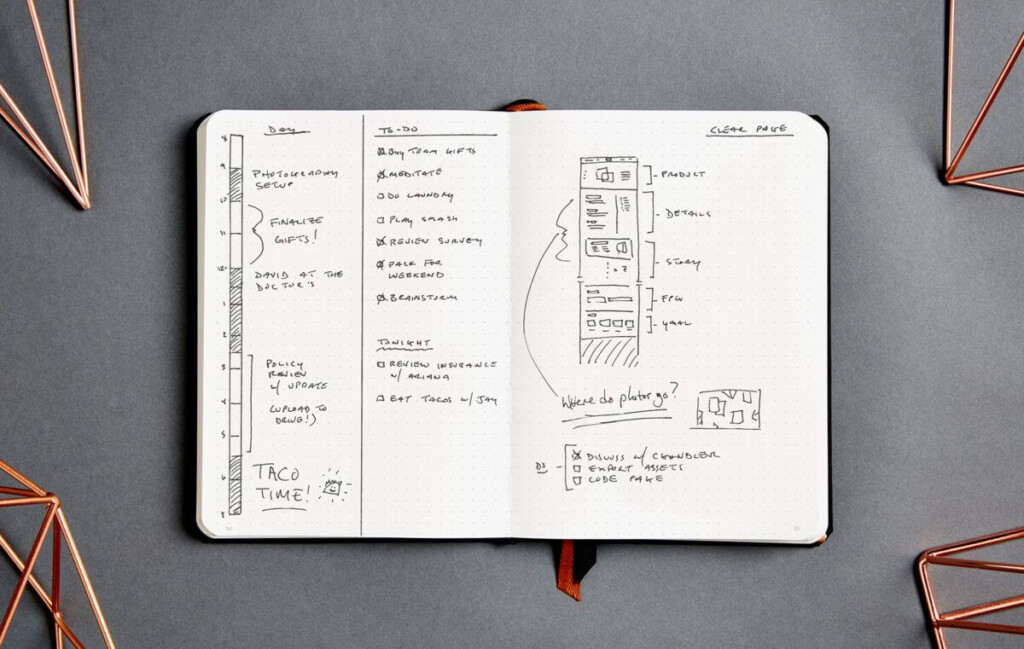 DAY
8
9
10
11
12
1
2
3
4
5
6
7
8
PHOTOGRAPHY
SETUP
FINALIZE
GIFTS!
DAVID AT THE
DOCTOR'S
POLICY
REVIEW
W/ UPDATE
(UPLOAD TO
DRIVE!)
TACO
TIME!
TO-DO
BUY TEAM GIFTS
MEDITATE
DO LAUNDRY
PLAY SMASH
REVIEW SURVEY
PACK FOR
WEEKEND
BRAINSTORM
TONIGHT
REVIEW INSURANCE
W/ ARIANA
EAT TACOS W/ JAY
CLEAR PAGE
PRODUCT
DETAILS
STORY
x 7
YMAL
Where do photos go?
DISCUSS W/ CHANDLER
EXPORT ASSETS
CODE PAGE